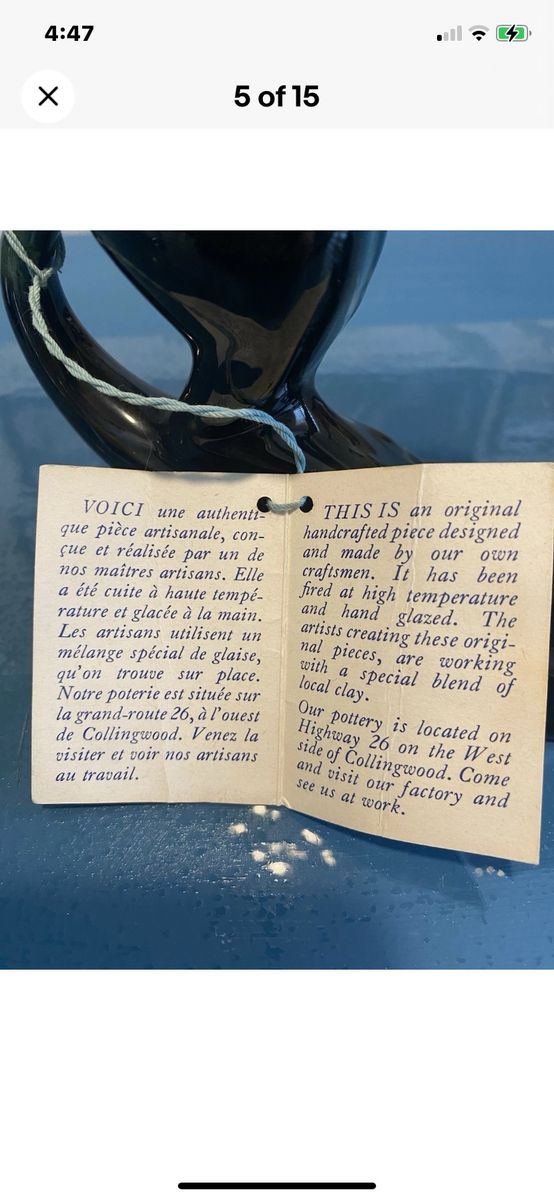 4:47
5 of 15
VOICI une authenti-
que pièce artisanale, con-
çue et réalisée par un de
nos maîtres artisans. Elle
a été cuite à haute tempé-
rature et glacée à la main.
Les artisans utilisent un
mélange spécial de glaise,
qu'on trouve sur place.
Notre poterie est située sur
la grand-route 26, à l'ouest
de Collingwood. Venez la
visiter et voir nos artisans
au travail.
THIS IS an original
handcrafted piece designed
and made by our own
craftsmen. It has been
fired at high temperature
and hand glazed. The
artists creating these origi-
nal pieces, are working
with a special blend of
local clay.
Our pottery is located on
Highway 26 on the West
side of Collingwood. Come
and visit our factory and
see us at work.